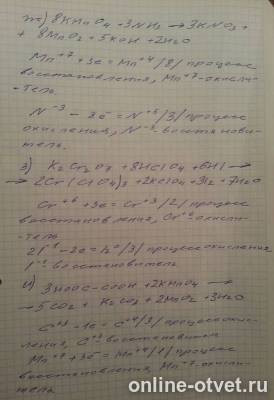 ж) 8KMnO4 + 3NH3 → 3KNO3 +
+ 8MnO2 + 5KOH + 2H2O
Mn+7 + 3e = Mn+4 /8/ процесс
восстановления, Mn+7 - окисли-
тель
N-3 - 8e = N+5 /3/ процесс
окисления, N-3 - восстанови-
тель.
з) K2Cr2O7 + 8HClO4 + 6HI →
→ 2Cr(ClO4)3 + 2KClO4 + 3I2 + 7H2O
Cr+6 + 3e = Cr+3 /2/ процесс
восстановления, Cr+6 - окисли-
тель
2I-1 - 2e = I2 0 /3/ процесс окисления
I-1 - восстановитель
и) 3HOOC-COOH + 2KMnO4 →
→ 5CO2 + K2CO3 + 2MnO2 + 3H2O
C+3 - 1e = C+4 /3/ процесс окис-
ления, C+3 - восстановитель
Mn+7 + 3e = Mn+4 /1/ процесс
восстановления, Mn+7 - окисли-
тель
online-otvet.ru